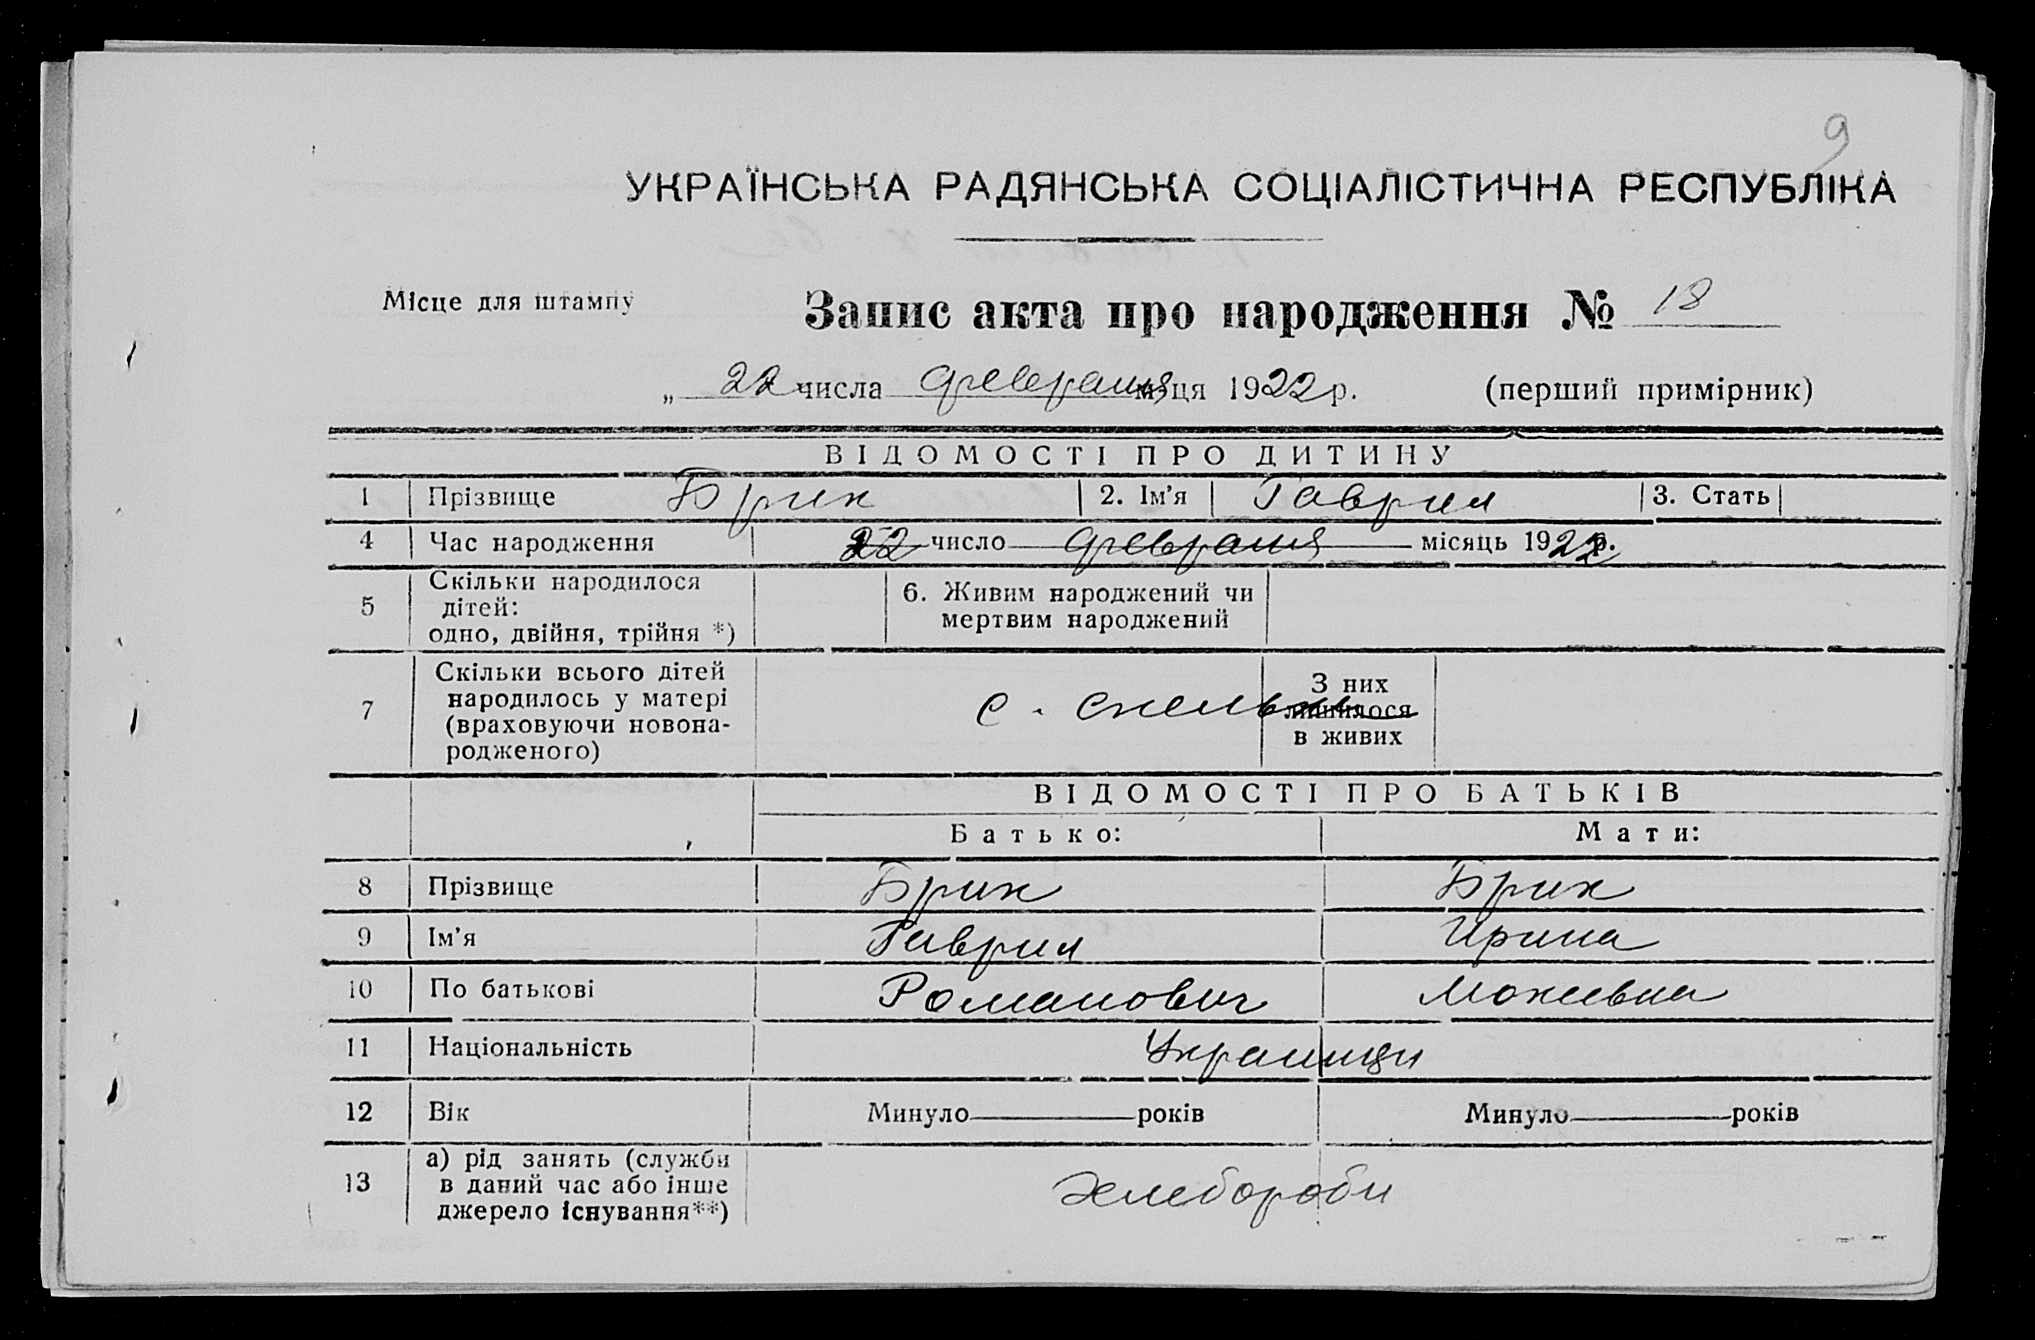 9
УКРАЇНСЬКА РАДЯНСЬКА СОЦІАЛІСТИЧНА РЕСПУБЛІКА
Місце для штампу
Запис акта про народження № 18
„ 22 числа февраля м-ця 1922 р. (перший примірник)
ВІДОМОСТІ ПРО ДИТИНУ
1 Прізвище Брик 2. Ім’я Гаврил 3. Стать
4 Час народження 22 число февраля місяць 1922 р.
5 Скільки народилося дітей: одно, двійня, трійня *) 6. Живим народжений чи мертвим народжений
7 Скільки всього дітей народилось у матері (враховуючи новонародженого) с. З них лишилося в живих
ВІДОМОСТІ ПРО БАТЬКІВ
Батько: Мати:
8 Прізвище Брик Брик
9 Ім’я Гаврил Ирина
10 По батькові Романович Мокеевна
11 Національність Украинци
12 Вік Минуло років Минуло років
13 а) рід занять (служби в даний час або інше джерело існування**) Хлебороби